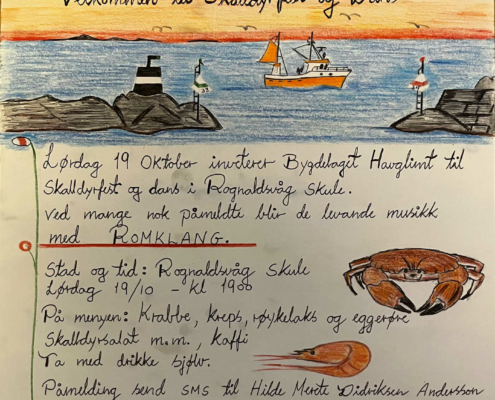 Velkommen til Skalldyrfest og Dans
Lørdag 19 Oktober inviterer Bygdelaget Havglimt til
Skalldyrfest og dans i Rognaldsvåg skule.
Ved mange nok påmeldte blir de levande musikk
med ROMKLANG.
Stad og tid: Rognaldsvåg Skule
Lørdag 19/10 - Kl 19oo
På menyen: Krabbe, kreps, røykelaks og eggerøre
Skalldyrsalat m.m, Kaffi
Ta med drikke sjølv.
Påmelding send SMS til Hilde Merete Didriksen Anderson